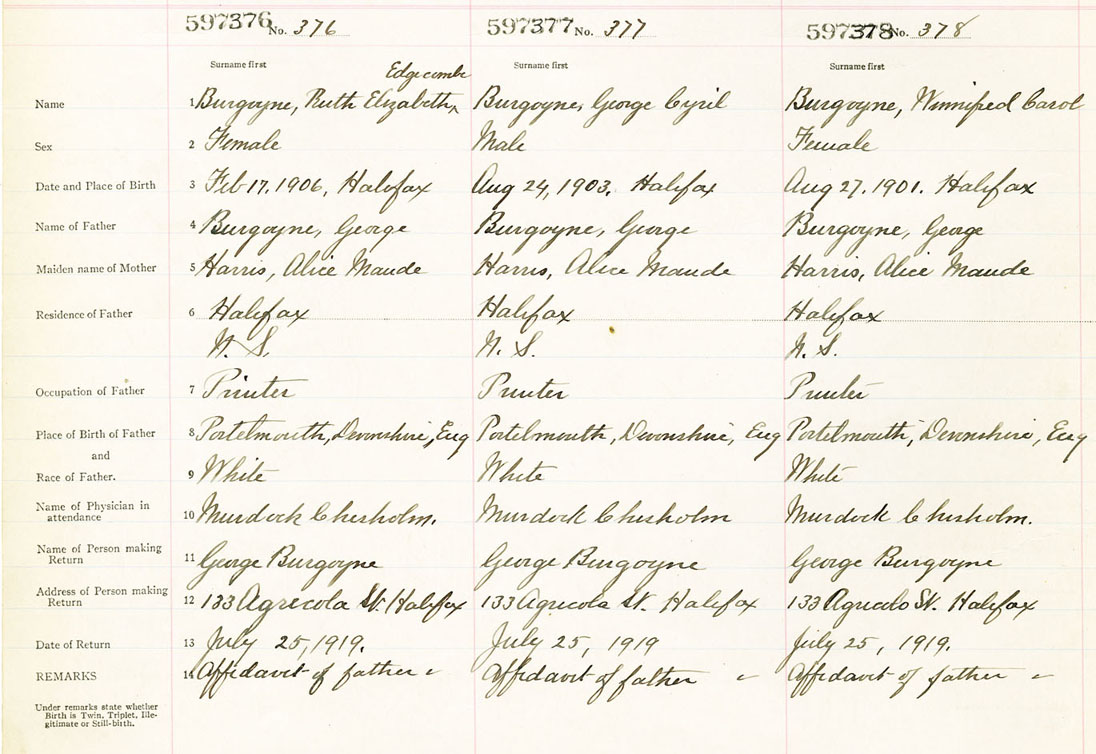 597376 No. 376 597377 No. 377 597378 No. 378
Surname first Surname first Surname first
Edgecombe
Name 1 Burgoyne, Ruth Elizabeth, ^ Burgoyne, George Cyril Burgoyne, Winnifred Carol
Sex 2 Female Male Female
Date and Place of Birth 3 Feb 17, 1906, Halifax Aug 24, 1903. Halifax Aug 27. 1901. Halifax
Name of Father 4 Burgoyne, George Burgoyne, George Burgoyne, George
Maiden name of Mother 5 Harris, Alice Maude Harris, Alice Maude Harris, Alice Maude
Residence of Father 6 Halifax Halifax Halifax
N. S. N. S. N. S.
Occupation of Father 7 Printer Printer Printer
Place of Birth of Father 8 Portelmouth, Devonshire, Eng Portelmouth, Devonshire, Eng Portelmouth, Devonshire, Eng
and
Race of Father. 9 White White White
Name of Physician in
attendance 10 Murdock Chisholm. Murdock Chisholm Murdock Chisholm.
Name of Person making
Return 11 George Burgoyne George Burgoyne George Burgoyne
Address of Person making
Return 12 133 Agricola St. Halifax 133 Agricola St. Halifax 133 Agricola St. Halifax
Date of Return 13 July 25, 1919. July 25, 1919 July 25, 1919.
REMARKS 14 Affidavit of father Affidavit of father Affidavit of father
Under remarks state whether
Birth is Twin, Triplet, Ille-
gitimate or Still-birth.